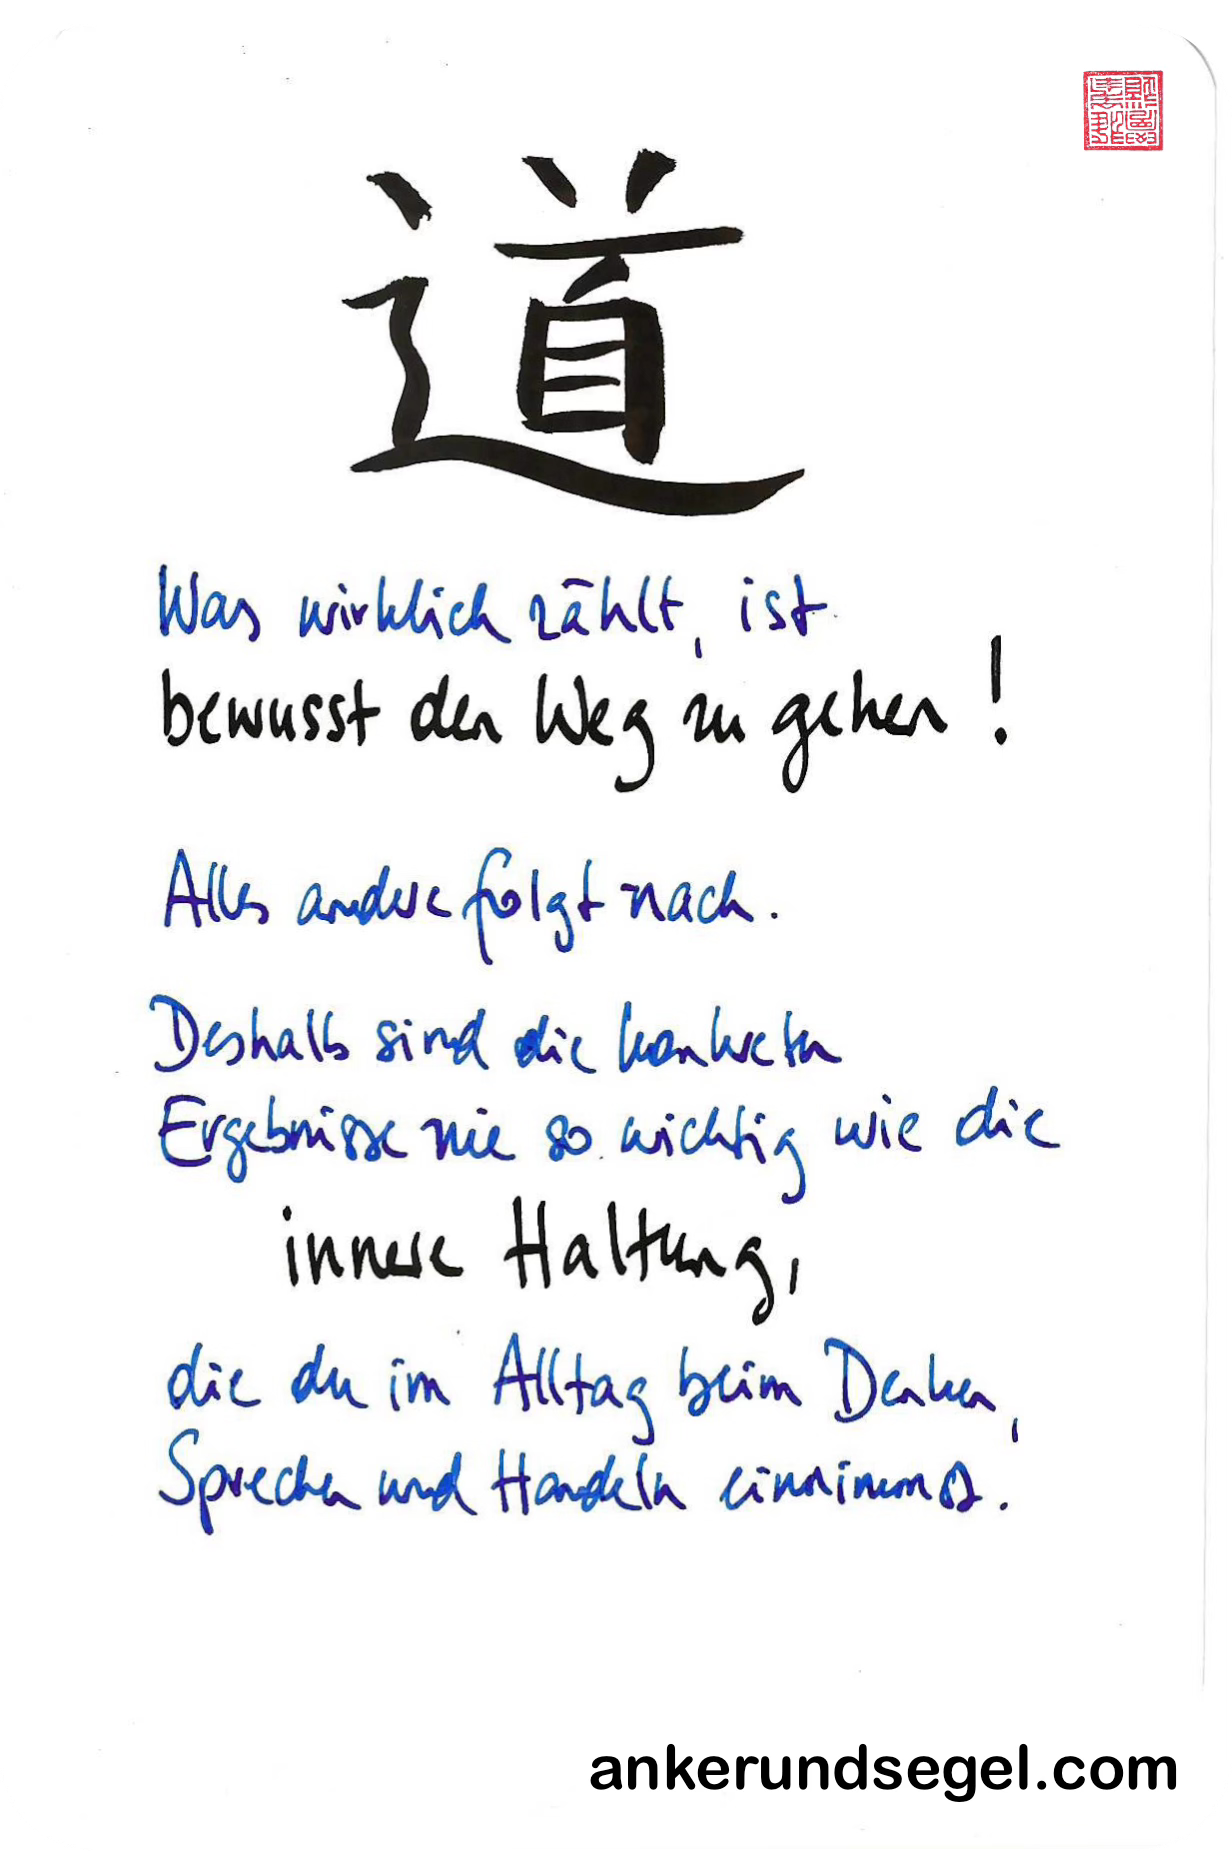 道
Was wirklich zählt, ist
bewusst den Weg zu gehen!
Alles andere folgt nach.
Deshalb sind die konkreten
Ergebnisse nie so wichtig wie die
innere Haltung,
die du im Alltag beim Denken,
Sprechen und Handeln einnimmst.
ankerundsegel.com